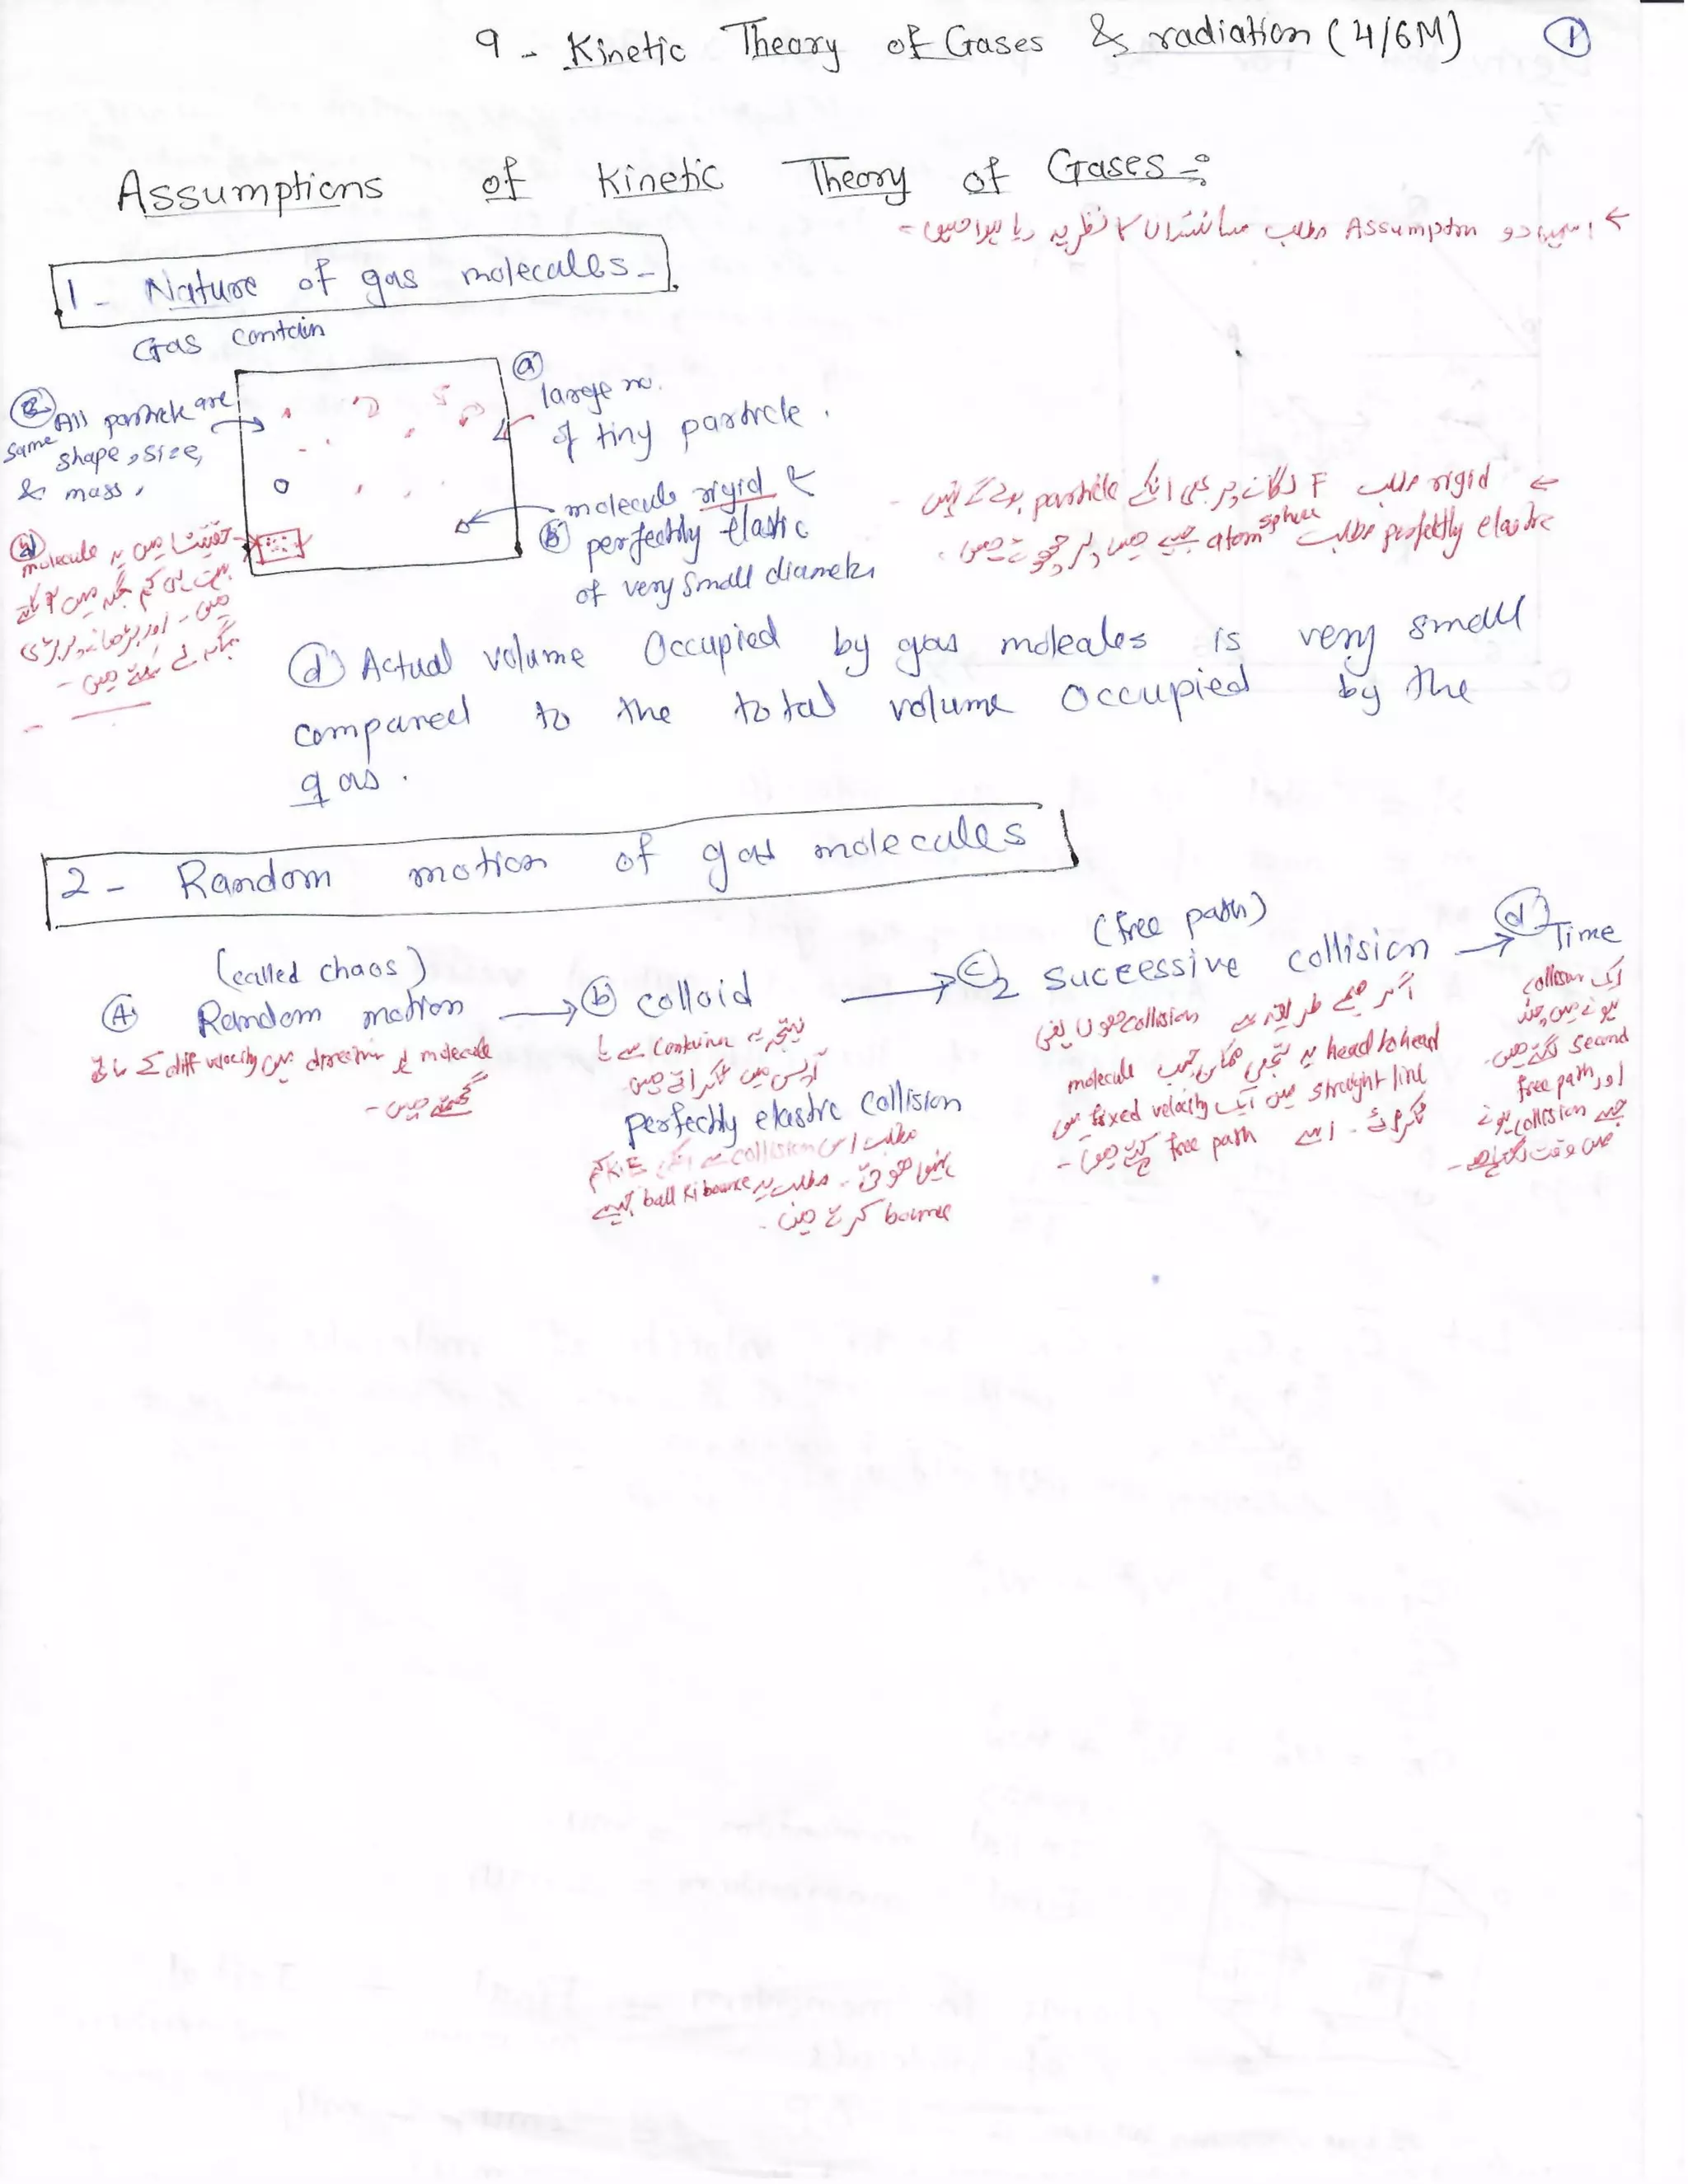 9 - Kinetic Theory of Gases & radiation (4/6M) ①
Assumptions of Kinetic Theory of Gases :-
← Assumption مطلب سائنسدان کا نظریہ
1 - Nature of gas molecules -
Gas contain
ⓐ large no.
of tiny particle .
ⓒ All particle are
same shape, size,
& mass ,
molecule rigid &
ⓑ perfectly Elastic
of very small diameter
← rigid مطلب F لگانے پر بھی انکے particle
perfectly elastic مطلب atom sphere جیسے ہیں
ⓓ molecule حقیقت میں یہ
بہت ہی کم جگہ میں
میں - اور بڑھانے پر بڑی
جگہ لے سکتے ہیں -
ⓓ Actual volume Occupied by gas moleales is very small
compared to the total volume occupied by the
gas .
2 - Random motion of gas molecules
(called chaos)
Ⓐ Random motion → ⓑ colloid → ⓒ 2 successive collision → ⓓ Time
(free path)
molecule ہر direction میں diff velocity کے ساتھ
گھومتے ہیں -
نتیجہ یہ container سے یا
آپس میں ٹکراتے ہیں -
perfectly elastic collision
مطلب اس collision سے انکی K.E کم
نہیں ہوتی - مطلب یہ ball ki bounce جیسے
bounce کرتے ہیں -
collision ہوں یعنی
head to head یہ تبھی ممکن جب molecule
straight line میں ایک fixed velocity سے
ٹکرائے - اسے free path کہتے ہیں -
ایک collision
ہونے میں چند
second لگتے ہیں -
اور free path
جیسے collision ہونے
میں وقت لگتا ہے -